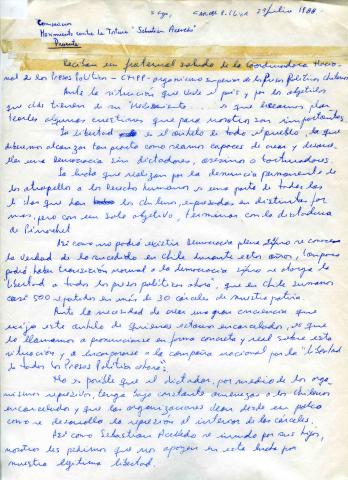 Stgo, Carcel P. Stgo 29/Julio 1988.-
Compañeros
Movimiento contra la Tortura "Sebastián Acevedo"
Presente
Reciban un fraternal saludo de la Coordinadora Nacio-
nal de los Presos Políticos - CNPP - organismo superior de los Presos Políticos chilenos
Ante la situación que vive el país y por los objetivos
que uds tienen de su Movimiento es que queremos plan
tearles algunas cuestiones que para nosotros son importantes.
La libertad es el anhelo de todo el pueblo, la que
debemos alcanzar tan pronto como seamos capaces de crear y desarro
llar una democracia sin dictadores, asesinos o torturadores.
La lucha que realizan por la denuncia permanente de
los atropellos a los derecho humanos, es una parte de todas las
luchas que dan los chilenos, expresadas en distintas for
mas, pero con un solo objetivo, terminar con la dictadura
de Pinochet
Así como no podrá existir democracia plena si no se conoce
la verdad de lo sucedido en Chile durante estos años, tampoco
podrá haber transición normal a la democracia si no se otorga la
"libertad a todos los presos políticos ahora", que en Chile sumamos
casi 500 repartidos en más de 30 cárceles de nuestra patria.
Ante la necesidad de crear una gran conciencia que
exija este anhelo de quienes estamos encarcelados, es que
lo llamamos a pronunciarse en forma concreta y real sobre esta
situación y a incorporarse a la campaña nacional por la "libertad
de todos los Presos Políticos ahora".
No es posible que el dictador, por medio de los orga
nismos represivos, tenga bajo constante amenazas a los chilenos
encarcelados y que las organizaciones dean desde un palco
como se desarrolla la represión al interior de las cárceles.
Así como Sebastián Acevedo se inmoló por sus hijos,
nosotros les pedimos que nos apoyen en esta lucha por
nuestra legítima libertad.